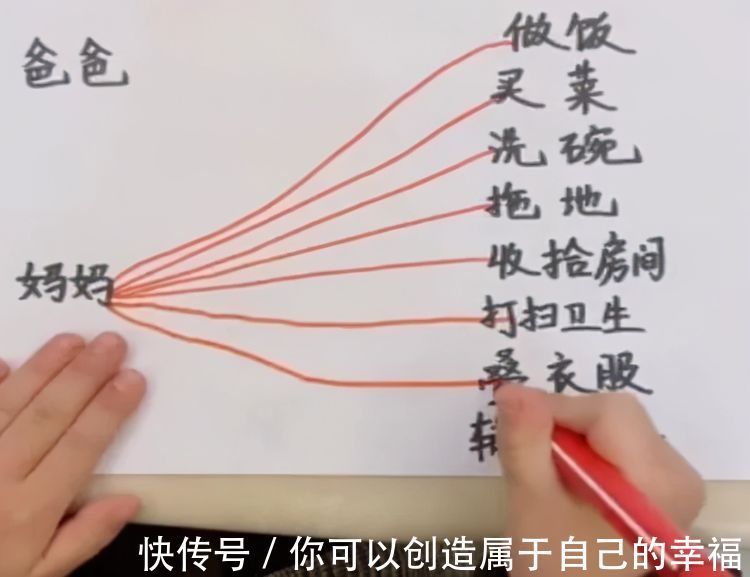 爸爸
做饭
买菜
洗碗
拖地
妈妈
收拾房间
打扫卫生
叠衣服
辅
快传号 / 你可以创造属于自己的幸福